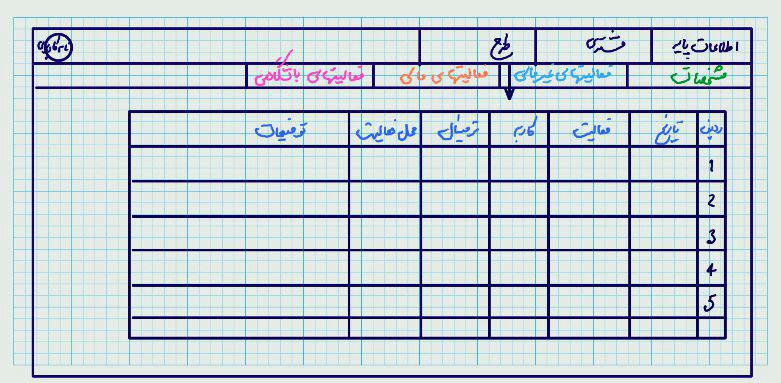 اطلاعات پایه مشتری طرح
مشخصات فعالیتهای غیرمالی فعالیتهای مالی فعالیتهای باشگاهی
ردیف تاریخ فعالیت کاربر ترمینال محل فعالیت توضیحات
1
2
3
4
5